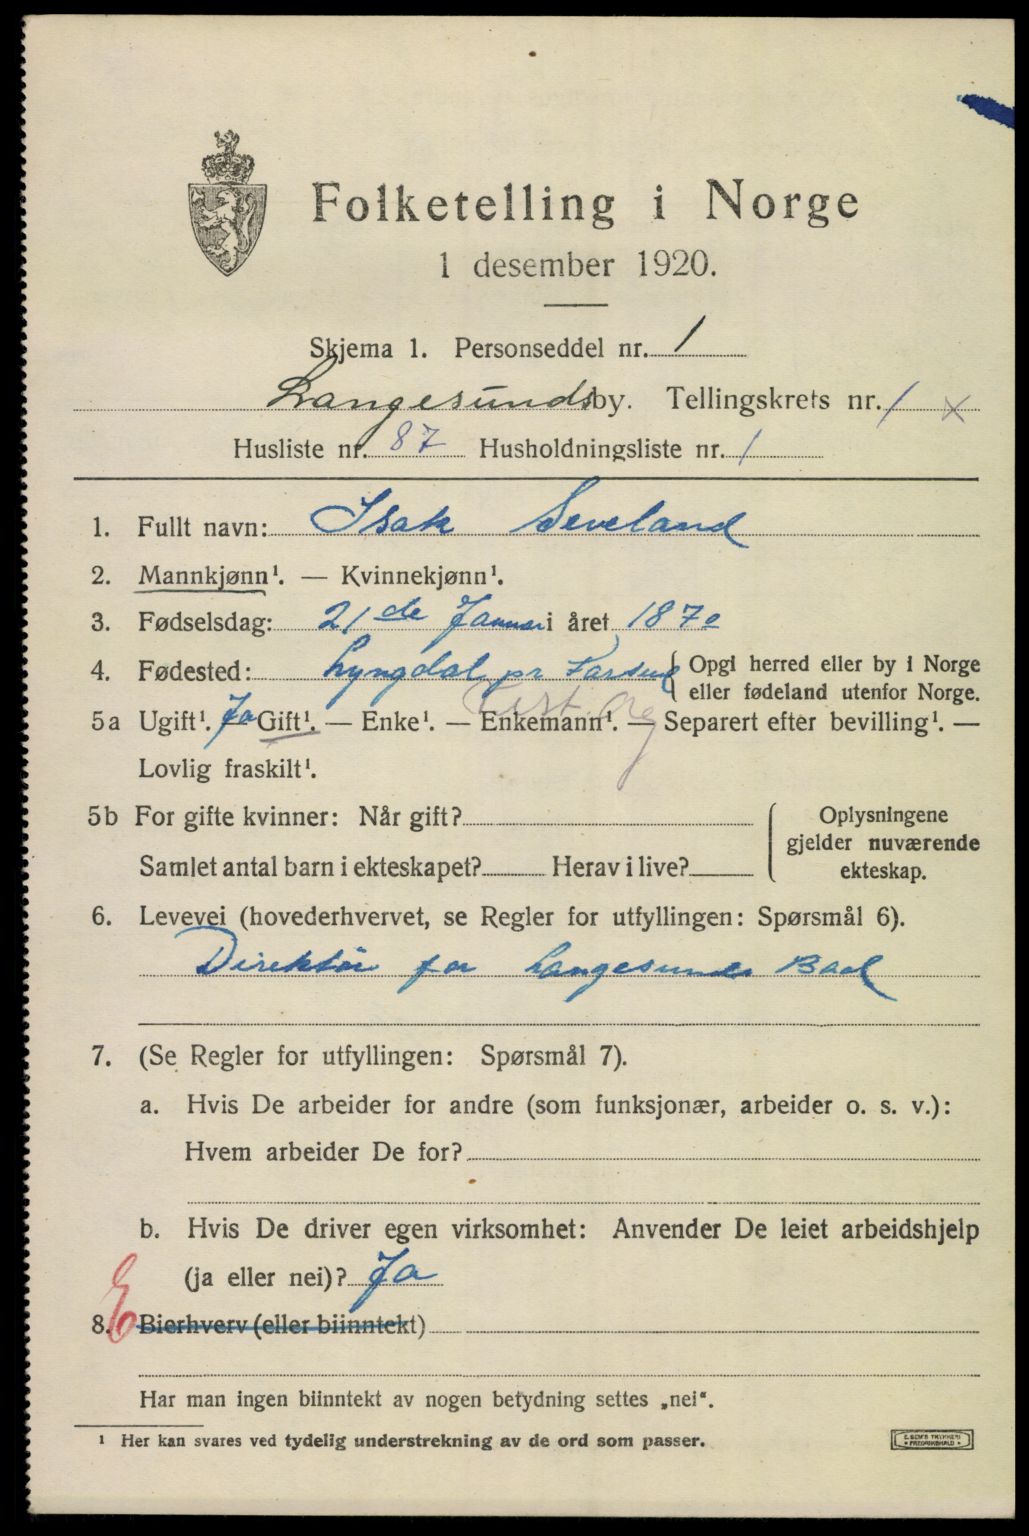 Folketelling i Norge
1 desember 1920.
Skjema 1. Personseddel nr. 1
Langesunds by. Tellingskrets nr. 1 x
Husliste nr. 87 Husholdningsliste nr. 1
1. Fullt navn: Isak Seveland
2. Mannkjønn¹. — Kvinnekjønn¹.
3. Fødselsdag: 21de Januar i året 1870
4. Fødested: Lyngdal pr Farsund { Opgi herred eller by i Norge
eller fødeland utenfor Norge.
Vest Ag
5a Ugift¹. Ja Gift¹. — Enke¹. — Enkemann¹. — Separert efter bevilling¹. —
Lovlig fraskilt¹.
5b For gifte kvinner: Når gift?
Samlet antal barn i ekteskapet? Herav i live?
Oplysningene
gjelder nuværende
ekteskap.
6. Levevei (hovederhvervet, se Regler for utfyllingen: Spørsmål 6).
Direktör for Langesunds Bad
7. (Se Regler for utfyllingen: Spørsmål 7).
a. Hvis De arbeider for andre (som funksjonær, arbeider o. s. v.):
Hvem arbeider De for?
b. Hvis De driver egen virksomhet: Anvender De leiet arbeidshjelp
(ja eller nei)? Ja
E
8. Bierhverv (eller biinntekt)
Har man ingen biinntekt av nogen betydning settes „nei“.
¹ Her kan svares ved tydelig understrekning av de ord som passer.
E. SEM'S TRYKKERI
FREDRIKSHALD